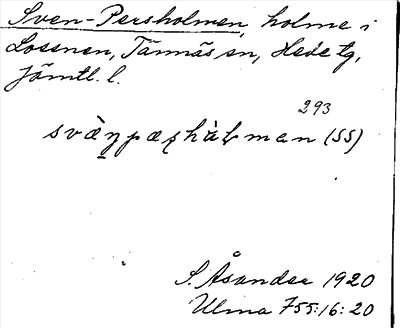 Sven-Persholmen, holme i
Lossnen, Tännäs sn, Hede tg,
Jämtl. l.
293
(SS)
S. Åsander 1920
Ulma 755:16:20